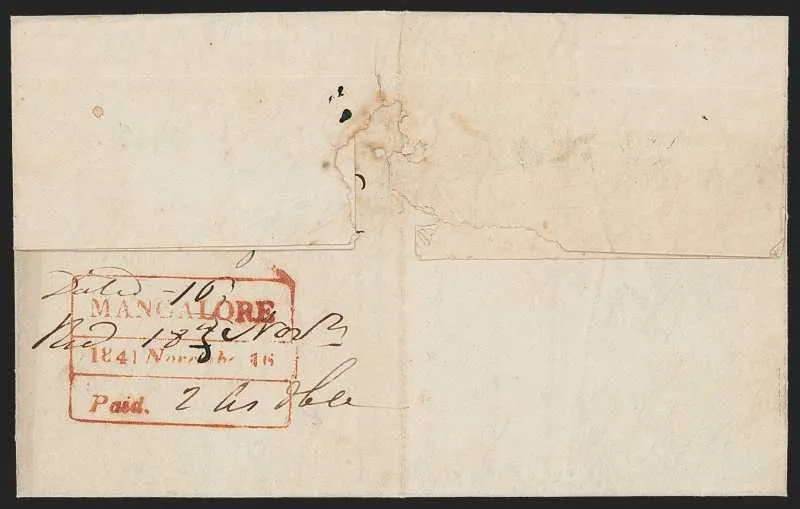 Dated - 16
MANGALORE
Recd 18 Novr
1841 November 16
Paid. 2 As